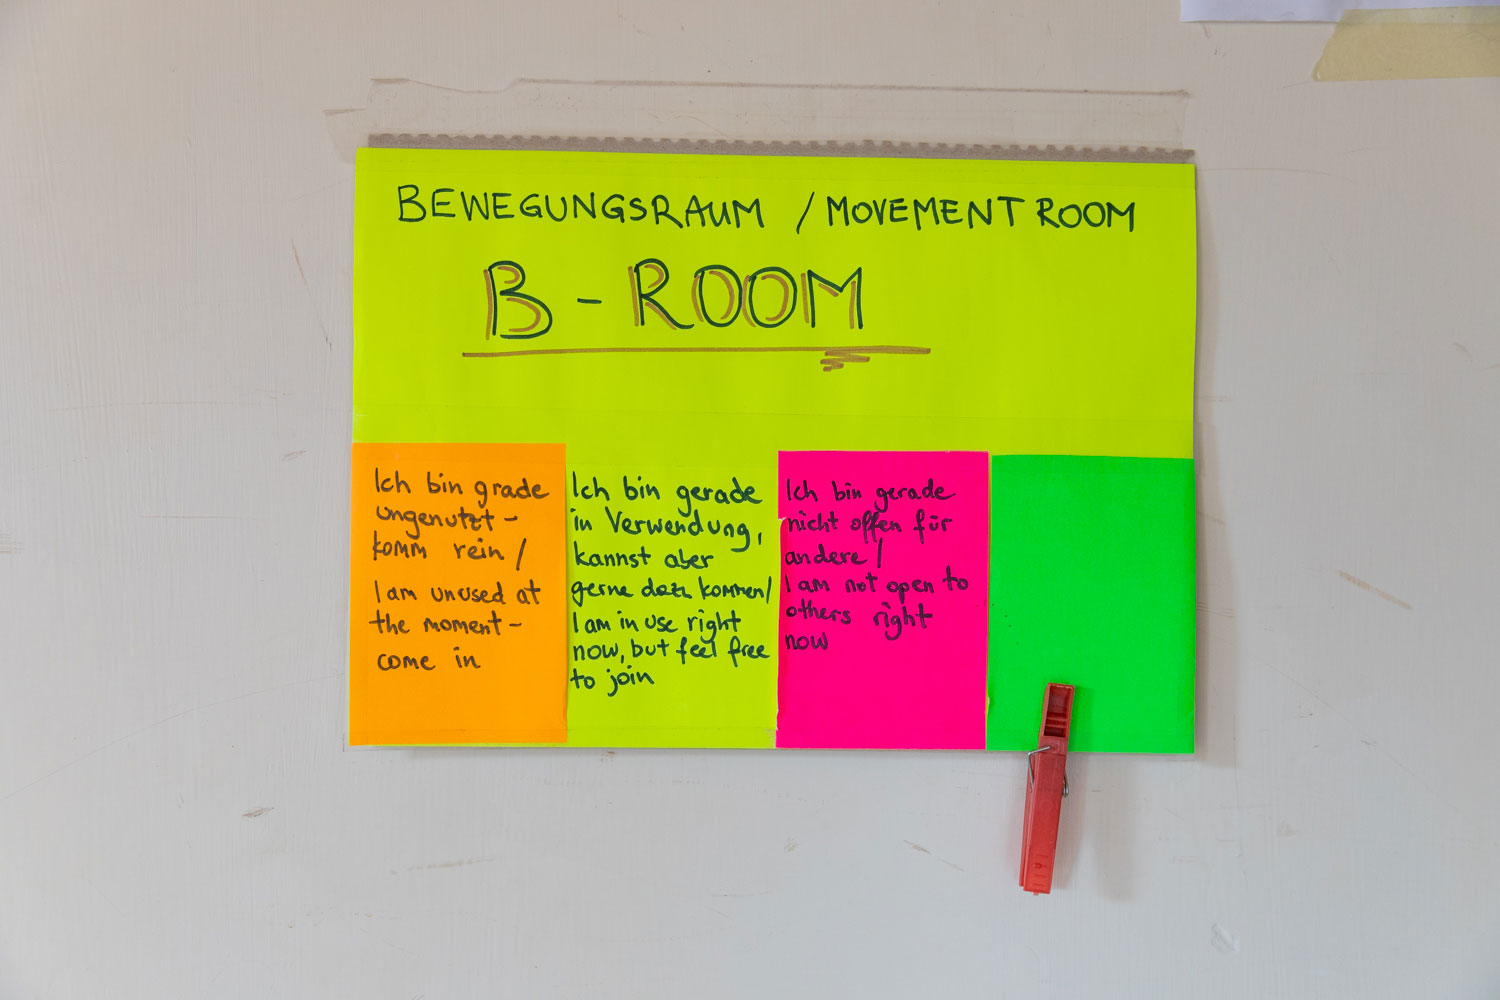 BEWEGUNGSRAUM / MOVEMENT ROOM
B - ROOM
Ich bin grade
ungenutzt -
komm rein /
I am unused at
the moment -
come in
Ich bin gerade
in Verwendung,
kannst aber
gerne dazu kommen/
I am in use right
now, but feel free
to join
Ich bin gerade
nicht offen für
andere /
I am not open to
others right
now